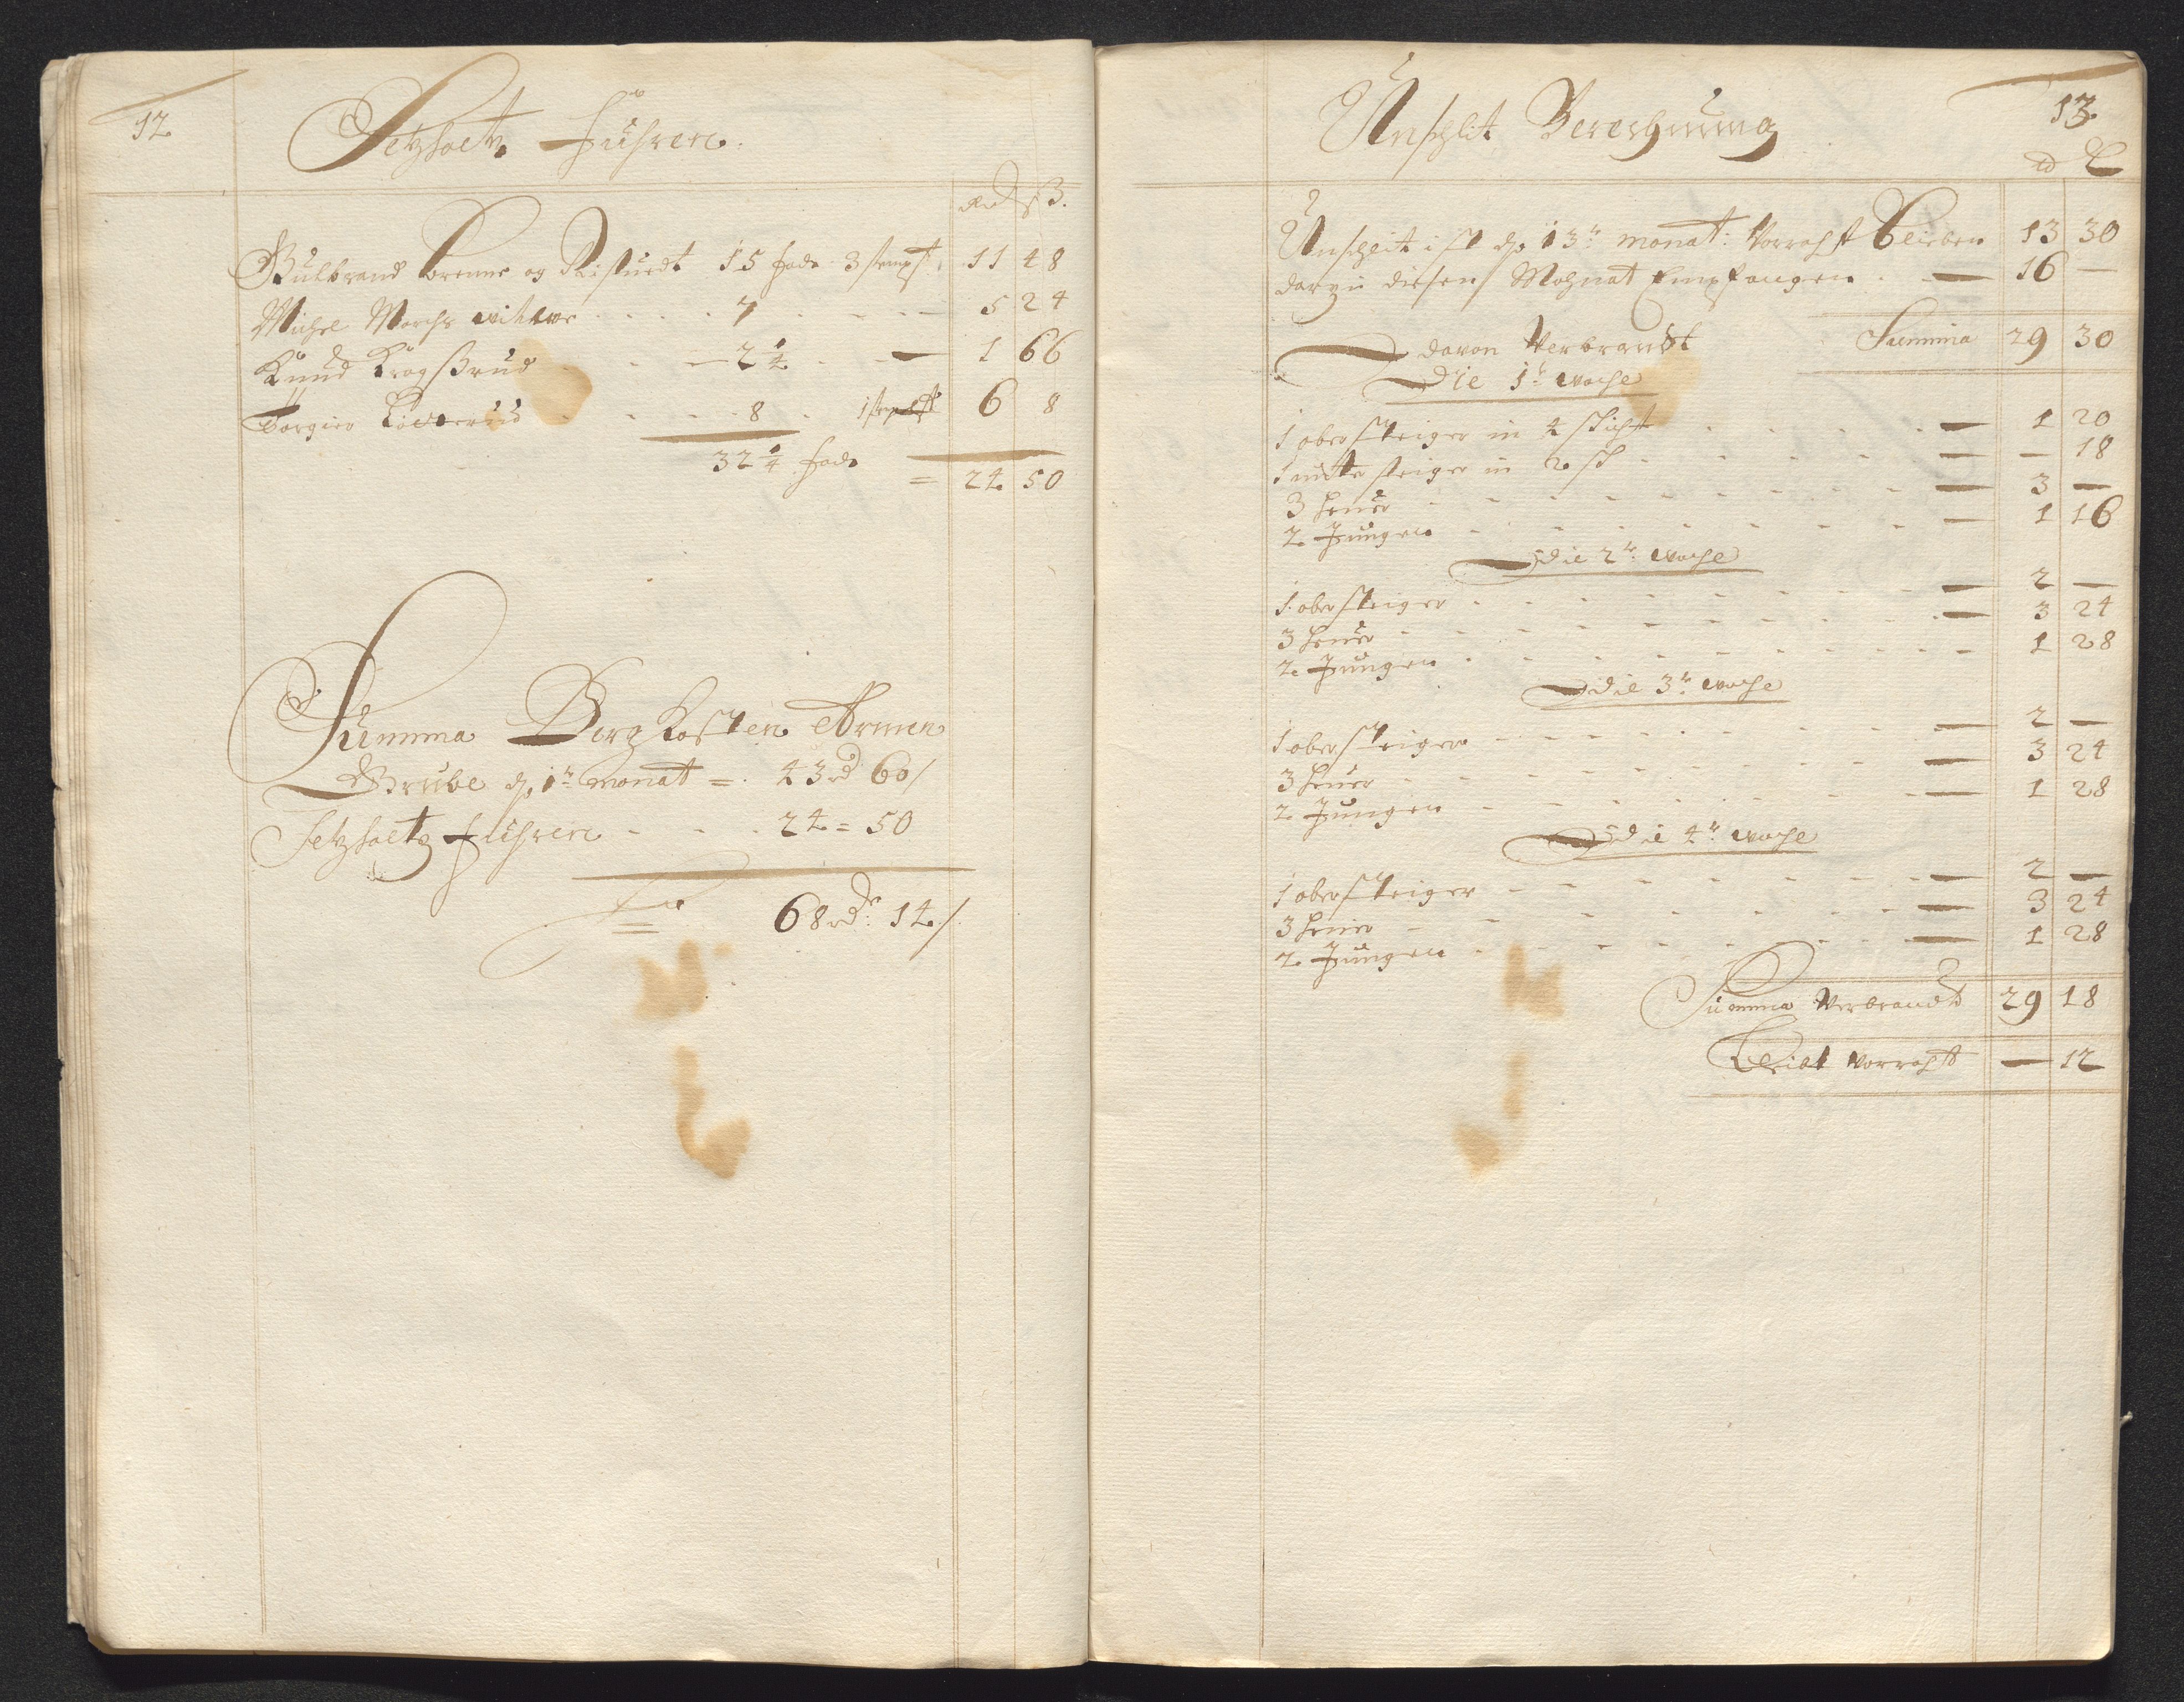 12
Setzholtz Fuhren.
Rd ß.
Gulbrand Brenne og Ristuedt 15 fade 3 stempf. 11 48
Michel Morchs wittwe 7 5 24
Knud Krogßrud 2 1/4 1 66
Torgier 8 1 6 8
32 1/4 fade = 24 50
Summa Bergkosten Armen
Grube d. 1te monat = 43 rd 60/
Setzholtz fuhren - - 24 = 50
68 rd: 14/
13
Unschlit Berechnung
Unschlit ist d. 13te monat: Vorrahtt blieben 13 30
darzu diesen Mohnat Empfangen 16 —
davon Verbrandt Summa 29 30
Die 1te woche
1 obersteiger in 4 schicht 1 20
1 unter steiger in 2 sch — 18
3 heuer 3 —
2 Jungen 1 16
Die 2te woche
1 obersteiger 2 —
3 heuer 3 24
2 Jungen 1 28
Die 3te woche
1 obersteiger 2 —
3 heuer 3 24
2 Jungen 1 28
Die 4te woche
1 obersteiger 2 —
3 heuer 3 24
2 Jungen 1 28
Summa Verbrandt 29 18
Bleibt vorrahtt — 12